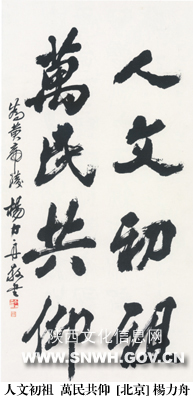 人文初祖
萬民共仰
為黄帝陵 楊力舟敬書
陕西文化信息网
WWW.SNWH.GOV.CN
人文初祖 萬民共仰 [北京] 楊力舟